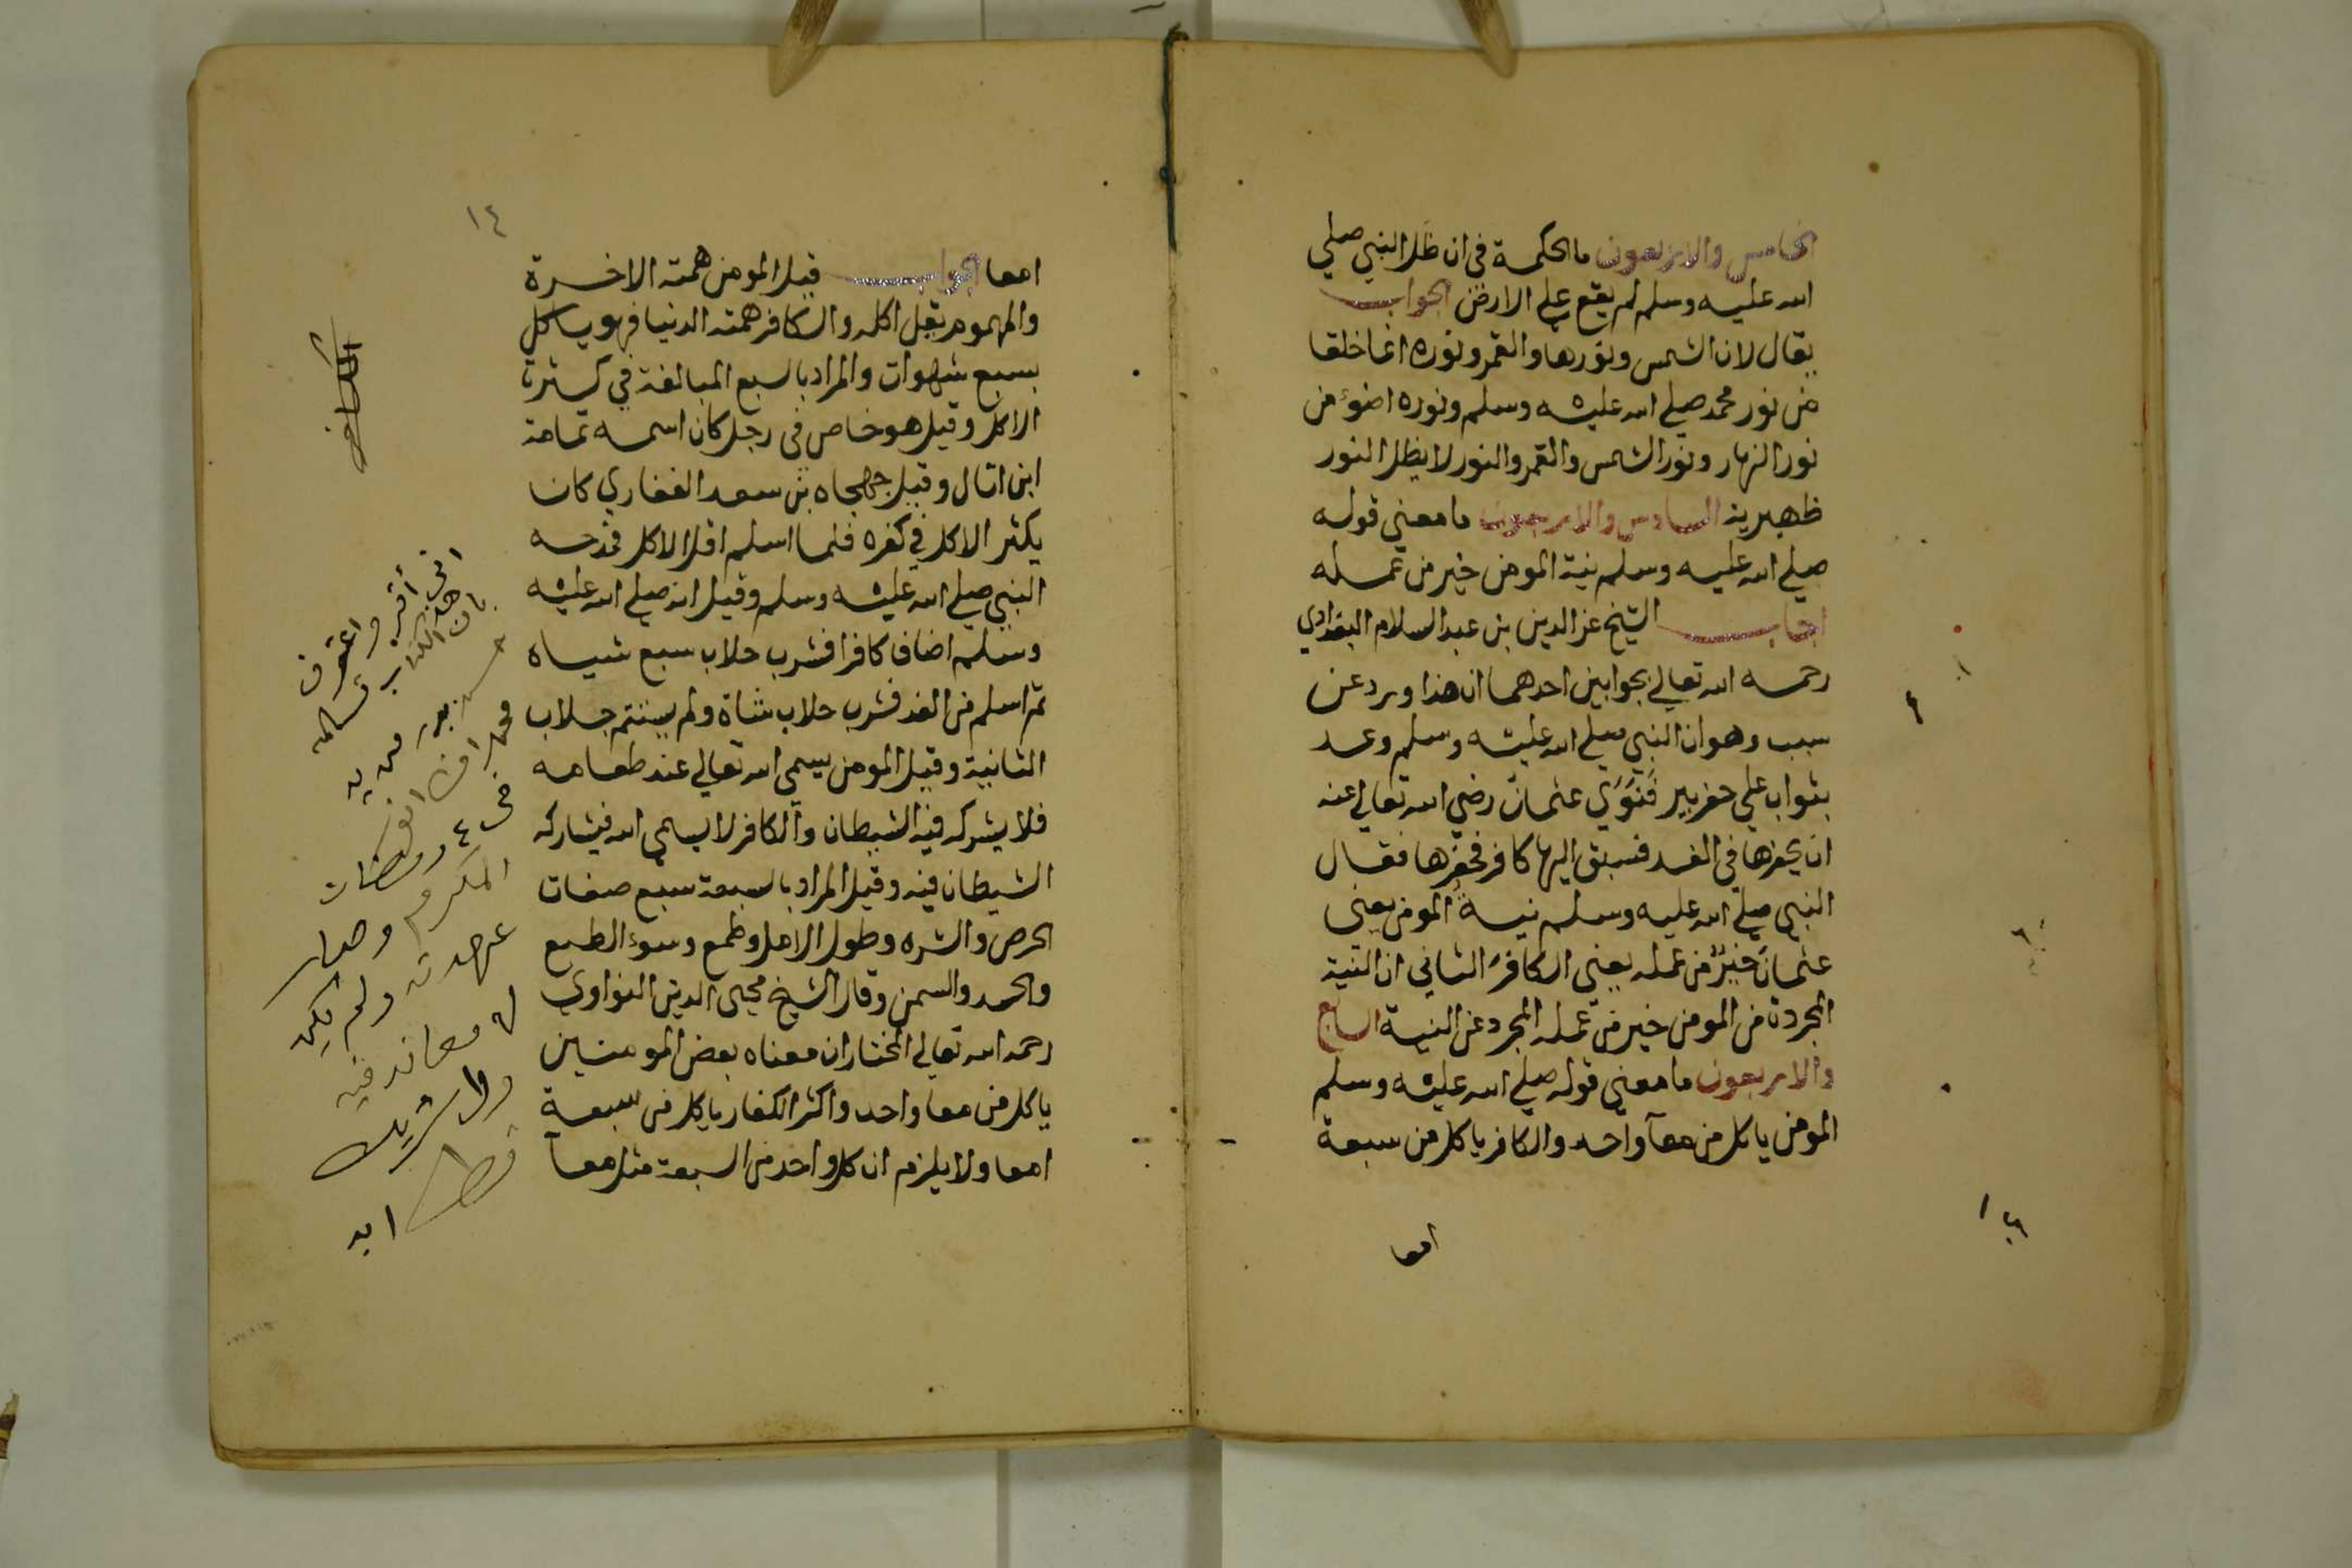 الخامس والاربعون ما الحكمة في ان ظل النبي صلي
الله عليه وسلم لم يقع علي الارض الجواب
يقال لان الشمس ونورها والقمر ونوره انما خلقا
من نور محمد صلي الله عليه وسلم ونوره اضوء من
نور النهار ونور الشمس والقمر والنور لا يظل النور
ظهيرية السادس والاربعون ما معني قوله
صلي الله عليه وسلم نية المومن خير من عمله
اجاب الشيخ عز الدين بن عبد السلام البغدادي
رحمه الله تعالي بجوابين احدهما ان هذا ورد عن
سبب وهو ان النبي صلي الله عليه وسلم وعد
بثواب علي حفر بير فَنَوَي عثمان رضي الله تعالي عنه
ان يحفرها في الغد فسبق اليها كافر فحفرها فقال
النبي صلي الله عليه وسلم نيةُ المومن يعني
عثمانَ خيرٌ من عمله يعني الكافرَ الثاني ان النية
المجردة من المومن خير من عمله المجرد عن النية السابع
والاربعون ما معني قوله صلي الله عليه وسلم
المومن ياكل من معآ واحد والكافر ياكل من سبعة
امعا
١٤
امعا الجواب قيل المومن همته الاخرة
والمهموم يقل اكله والكافر همته الدنيا فهو ياكل
بسبع شهوات والمراد بالسبع المبالغة في كثرة
الاكل وقيل هو خاص في رجل كان اسمه ثمامة
ابن اثال وقيل جهجاه بن سعد الغفاري كان
يكثر الاكل في كفره فلما اسلم اقل الاكل فمدحه
النبي صلي الله عليه وسلم وقيل انه صلي الله عليه
وسلم اضاف كافرا فشرب حلاب سبع شياه
ثم اسلم من الغد فشرب حلاب شاة ولم يستتم حلاب
الثانية وقيل المومن يسمي الله تعالي عند طعامه
فلا يشركه فيه الشيطان والكافر لا يسمي الله فيشاركه
الشيطان فيه وقيل المراد بالسبعة سبع صفات
الحرص والشره وطول الامل وطمع وسوء الطبع
والحسد والسمن وقال الشيخ محيي الدين النواوي
رحمه الله تعالي المختار ان معناه بعض المومنين
ياكل من معا واحد واكثر الكفار ياكل من سبعة
امعا ولا يلزم ان كل واحد من السبعة مثل معآ
اني أقر واعترف
بان هذا الكتاب تسلمه
من يد
محمد افندي
في ٤ رمضان
المكرم وصار
عهدته ولم يكن
له معاند فيه
ولا شريك
قط ابد